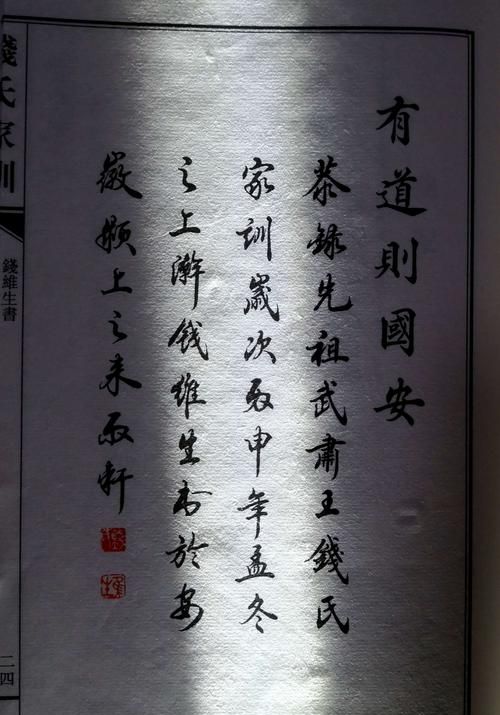 有道則國安
恭錄先祖武肅王錢氏
家訓歲次丙申年孟冬
之上澣錢維生書於安
徽潁上之來雨軒
錢氏家訓
錢維生書
二四